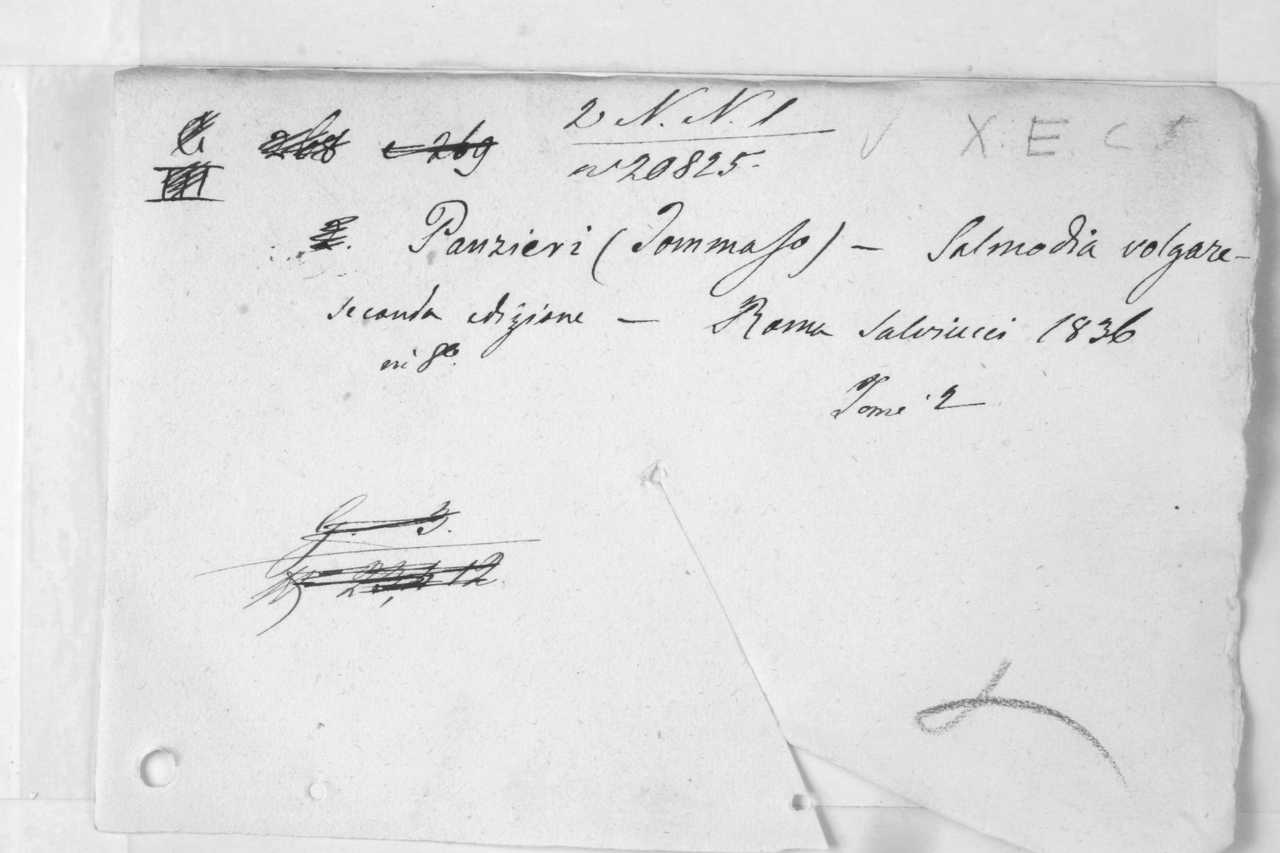 2 N. N. 1
n° 20825.
X. E. C 5
Panzieri (Tommaso) — Salmodia volgare—
seconda edizione — Roma Salviucci 1836
in 8°.
Tomi 2
268 e 269
G. 3.